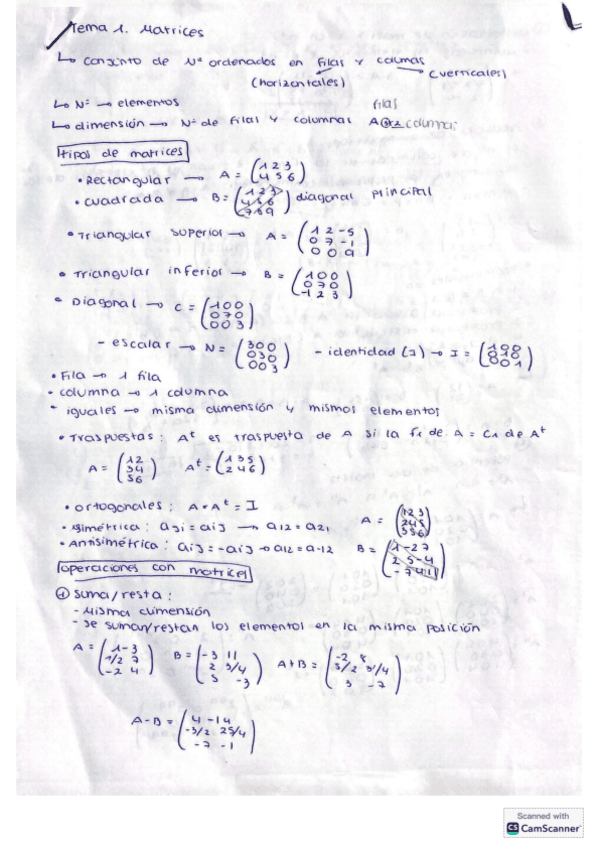 Tema 1. Matrices
↳ conjunto de Nº ordenados en filas y columas
(horizontales) (verticales)
↳ Nº → elementos
filas
↳ dimensión → Nº de filas y columnas A 3x2 columas
Tipos de matrices
• Rectangular → A = (1 2 3
4 5 6)
• cuadrada → B = (1 2 3
4 5 6
7 8 9) diagonal principal
• Triangular superior → A = (1 2 -5
0 7 -1
0 0 9)
• Triangular inferior → B = (1 0 0
0 7 0
-1 2 3)
• Diagonal → C = (1 0 0
0 7 0
0 0 3)
- escalar → N = (3 0 0
0 3 0
0 0 3) - identidad (I) → I = (1 0 0
0 1 0
0 0 1)
• Fila → 1 fila
• columna → 1 columna
• iguales → misma dimensión y mismos elementos
• Traspuestas: Aᵗ es traspuesta de A si la f1 de A = C1 de Aᵗ
A = (1 2
3 4
5 6) Aᵗ = (1 3 5
2 4 6)
• ortogonales: A • Aᵗ = I
• Simétrica: aji = aij → a12 = a21 A = (1 2 3
2 4 5
3 5 6)
• Antisimétrica: aij = -aij → a12 = a-12 B = (1 -2 7
2 5 -4
-7 4 1)
operaciones con matrices
① suma/resta:
- Misma dimensión
- se suman/restan los elementos en la misma posición
A = (1 -3
1/2 7
-2 4) B = (-3 11
2 3/4
5 -3) A+B = (-2 8
5/2 31/4
3 -7)
A-B = (4 -14
-3/2 25/4
-7 -1)
Scanned with
CS CamScanner